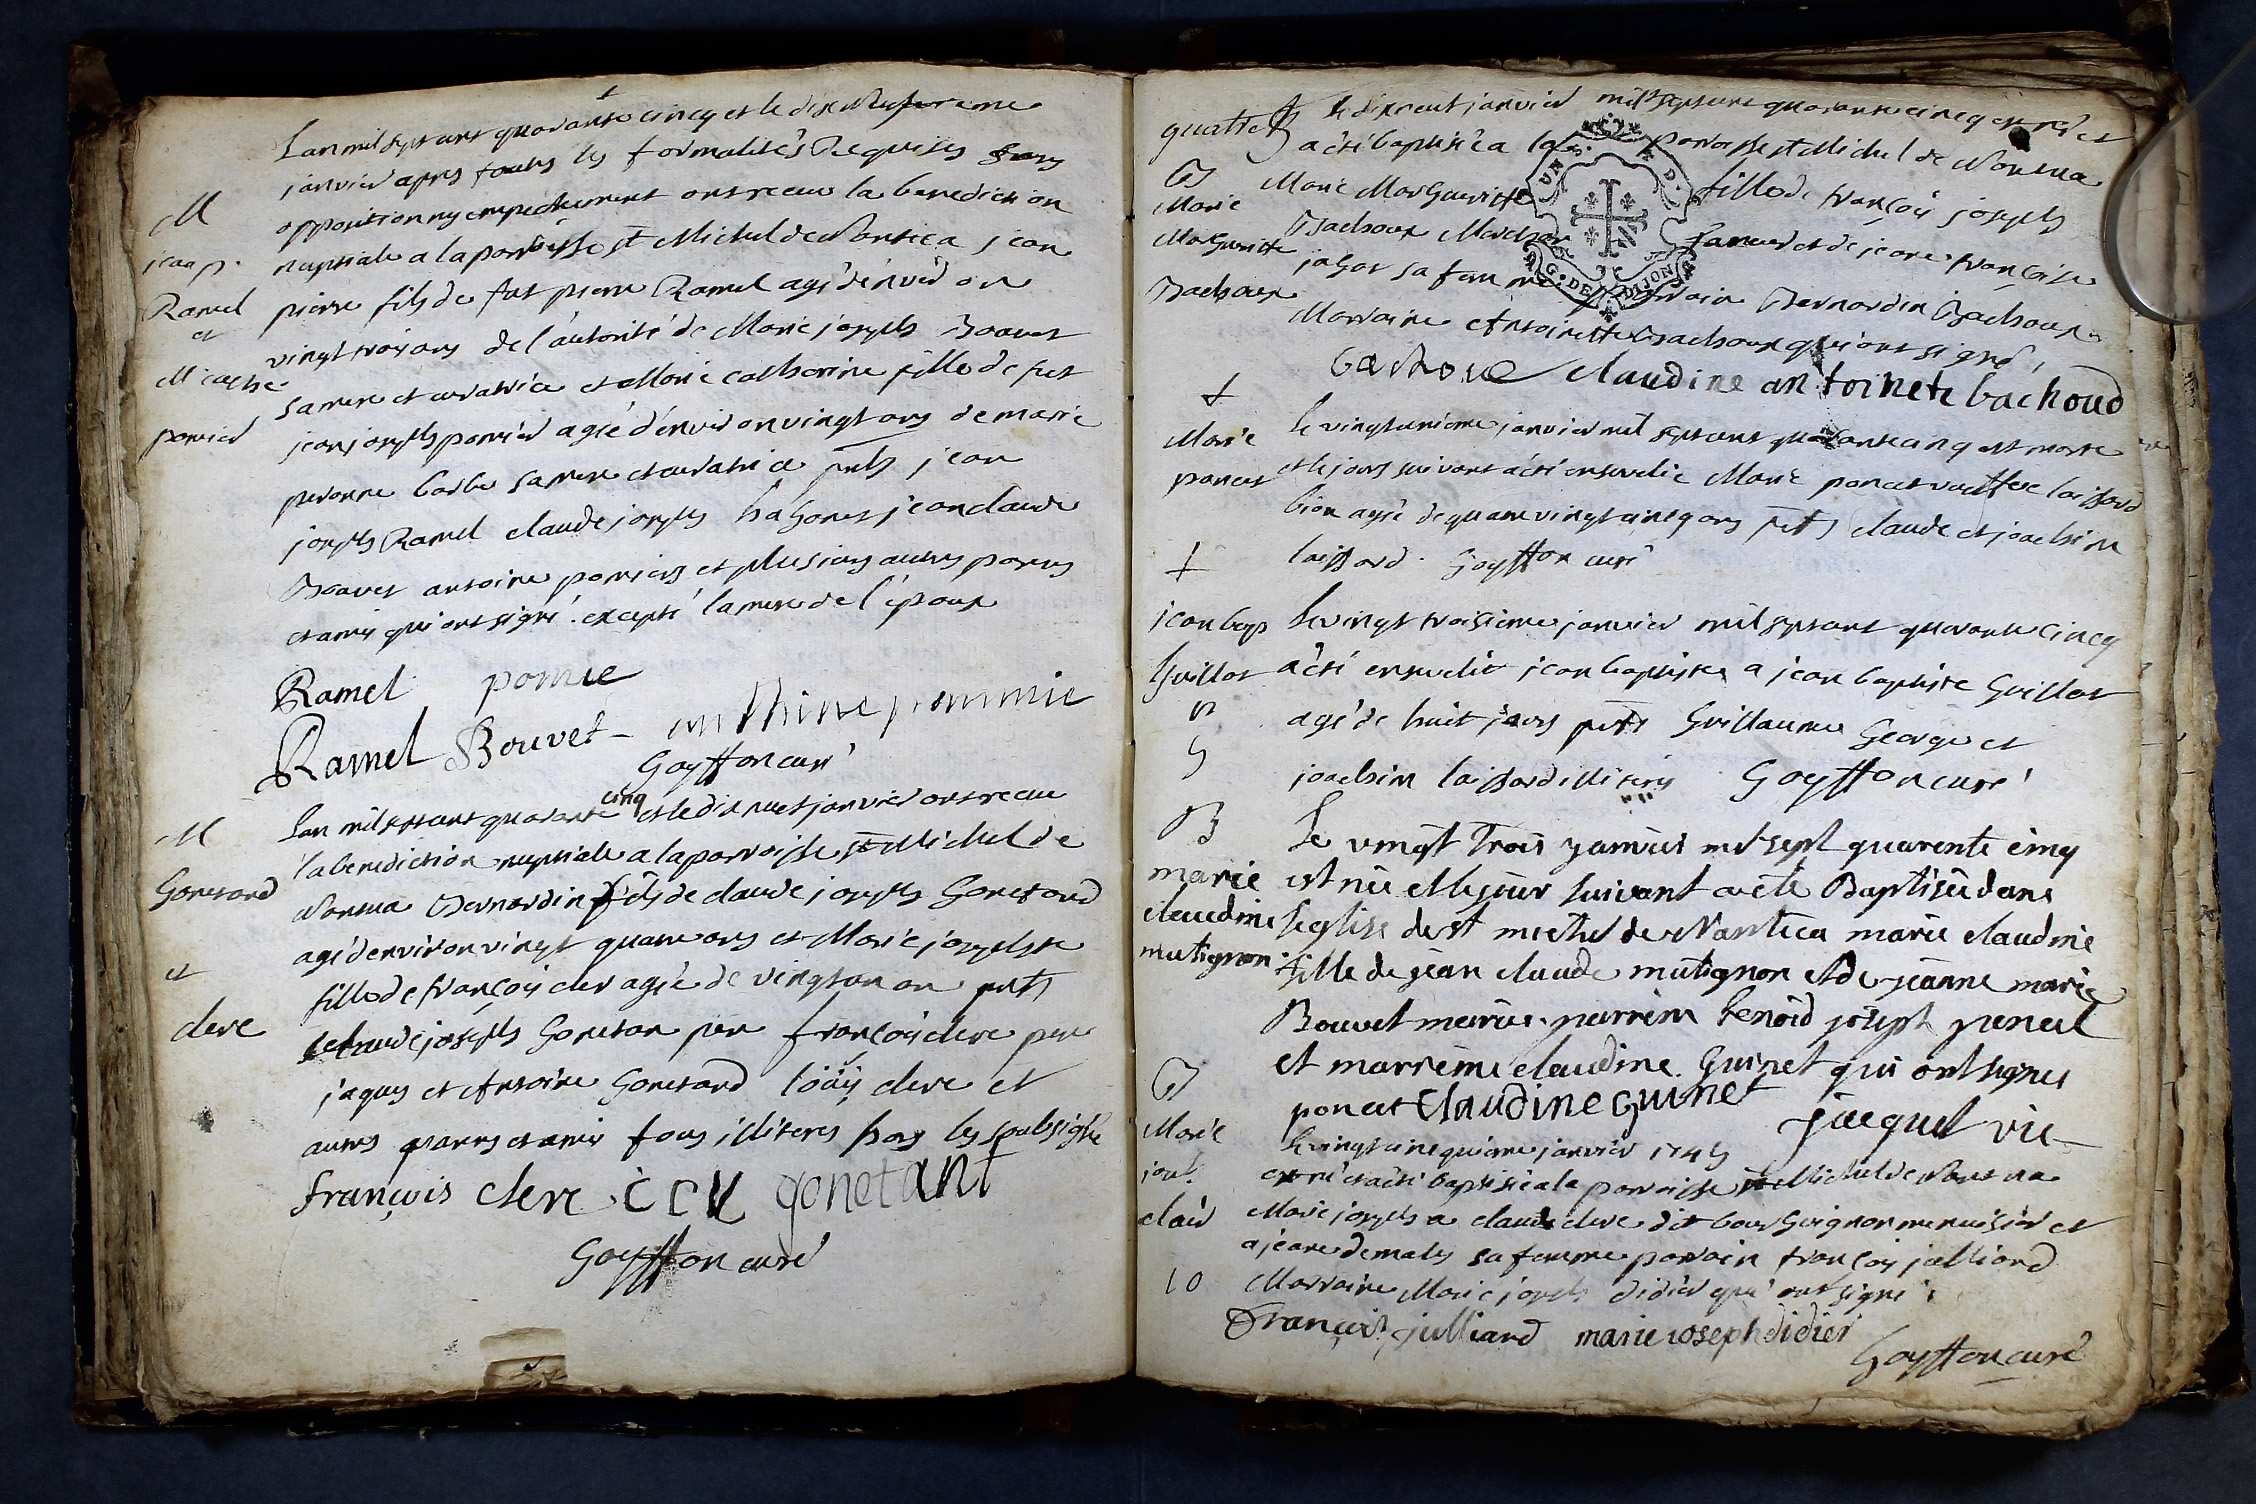 Lan mil sept cent quarante cincq et le dixneufvieme
janvier apres toutes les formalités Requises sans
opposition ny empechement ont receu la benediction
nuptiale a la parroisse st Michel de Nantua jean
pierre fils de fut pierre Ramel agé d'environ
vingt trois ans de l'autorité de Marie joseph Bouvet
sa mere et curatrice et Marie catherine fille de fut
jean joseph pomier agée d'environ vingt ans de marie
peronne barbe sa mere et curatrice pnts jean
joseph Ramel claude joseph jean claude
Bouvet antoine pomiers et plusieurs autres parens
et amis qui ont signé excepté la mere de l'epoux
M
jean p.
Ramel
et
M cathe
pomier
Ramel pomie
Ramel Bouvet anthine pommie
Goyffon curé
Lan mil sept cent quarante cinq et le dix neuf janvier ont receu
la benediction nuptiale a la parroisse st Michel de
Nantua Bernardin fils de claude joseph Gonetand
agé d'environ vingt quatre ans et Marie josephte
fille de françois clerc agée de vingt un an pnts
claude joseph Gonetan pere françois clerc pere
jaques et Antoine Gonetand loüis clerc et
autres parens et amis tous illiteres hors les soubsignés
M
Gonetand
et
clerc
françois clerc C C V gonetant
Goyffon curé
quatter
B
Marie
Marguerite
Bachoux
le dixneuf janvier mil sept cent quarante cincq est née et
a été baptisée a la parroisse st Michel de Nantua
Marie Marguerite fille de françois joseph
Bachoux Marchand et de jeane françoise
jagot sa femme parrain Bernardin Bachoux
Marraine Antoinette Bachoux qui ont signé
UN D.
G. DE DIJON
bachoux claudine antoinete bachoud
†
Marie
poncet
le vingt unieme janvier mil sept cent quarante cinq est morte
et le jour suivant a été ensevelie Marie poncet
agée de quatre vingt cinq ans pnts claude et joachim
laissard. Goyffon curé
†
jean bap
Guillot
le vingt troisieme janvier mil sept cent quarante cincq
a été enseveli jean baptiste a jean baptiste Guillot
agé de huit jours pnts Guillaume George et
joachim laissard illiteres Goyffon curé
B
marie
claudine
mutignon
Le vingt Trois janvier mil sept quarente cinq
est née et le jour suivant a été Baptisée dans
l'eglise de st michel de Nantua marie claudine
fille de jean claude mutignon et de jeanne marie
Bouvet mariés. parrein benoid joseph poncet
et marreine claudine Guinet qui ont signes
poncet claudine guinet
jacquet vic
B
Marie
jos.
clair
10
le vingt cinquieme janvier 1745
est née et a été baptisée a la parroisse st Michel de Nantua
Marie joseph a claude clerc dit bourguignon menuisier et
a jeane demaly sa femme parrain françois julliard
Marraine Marie joseph didier qui ont signé
François julliard marie ioseph didier
Goyffon curé